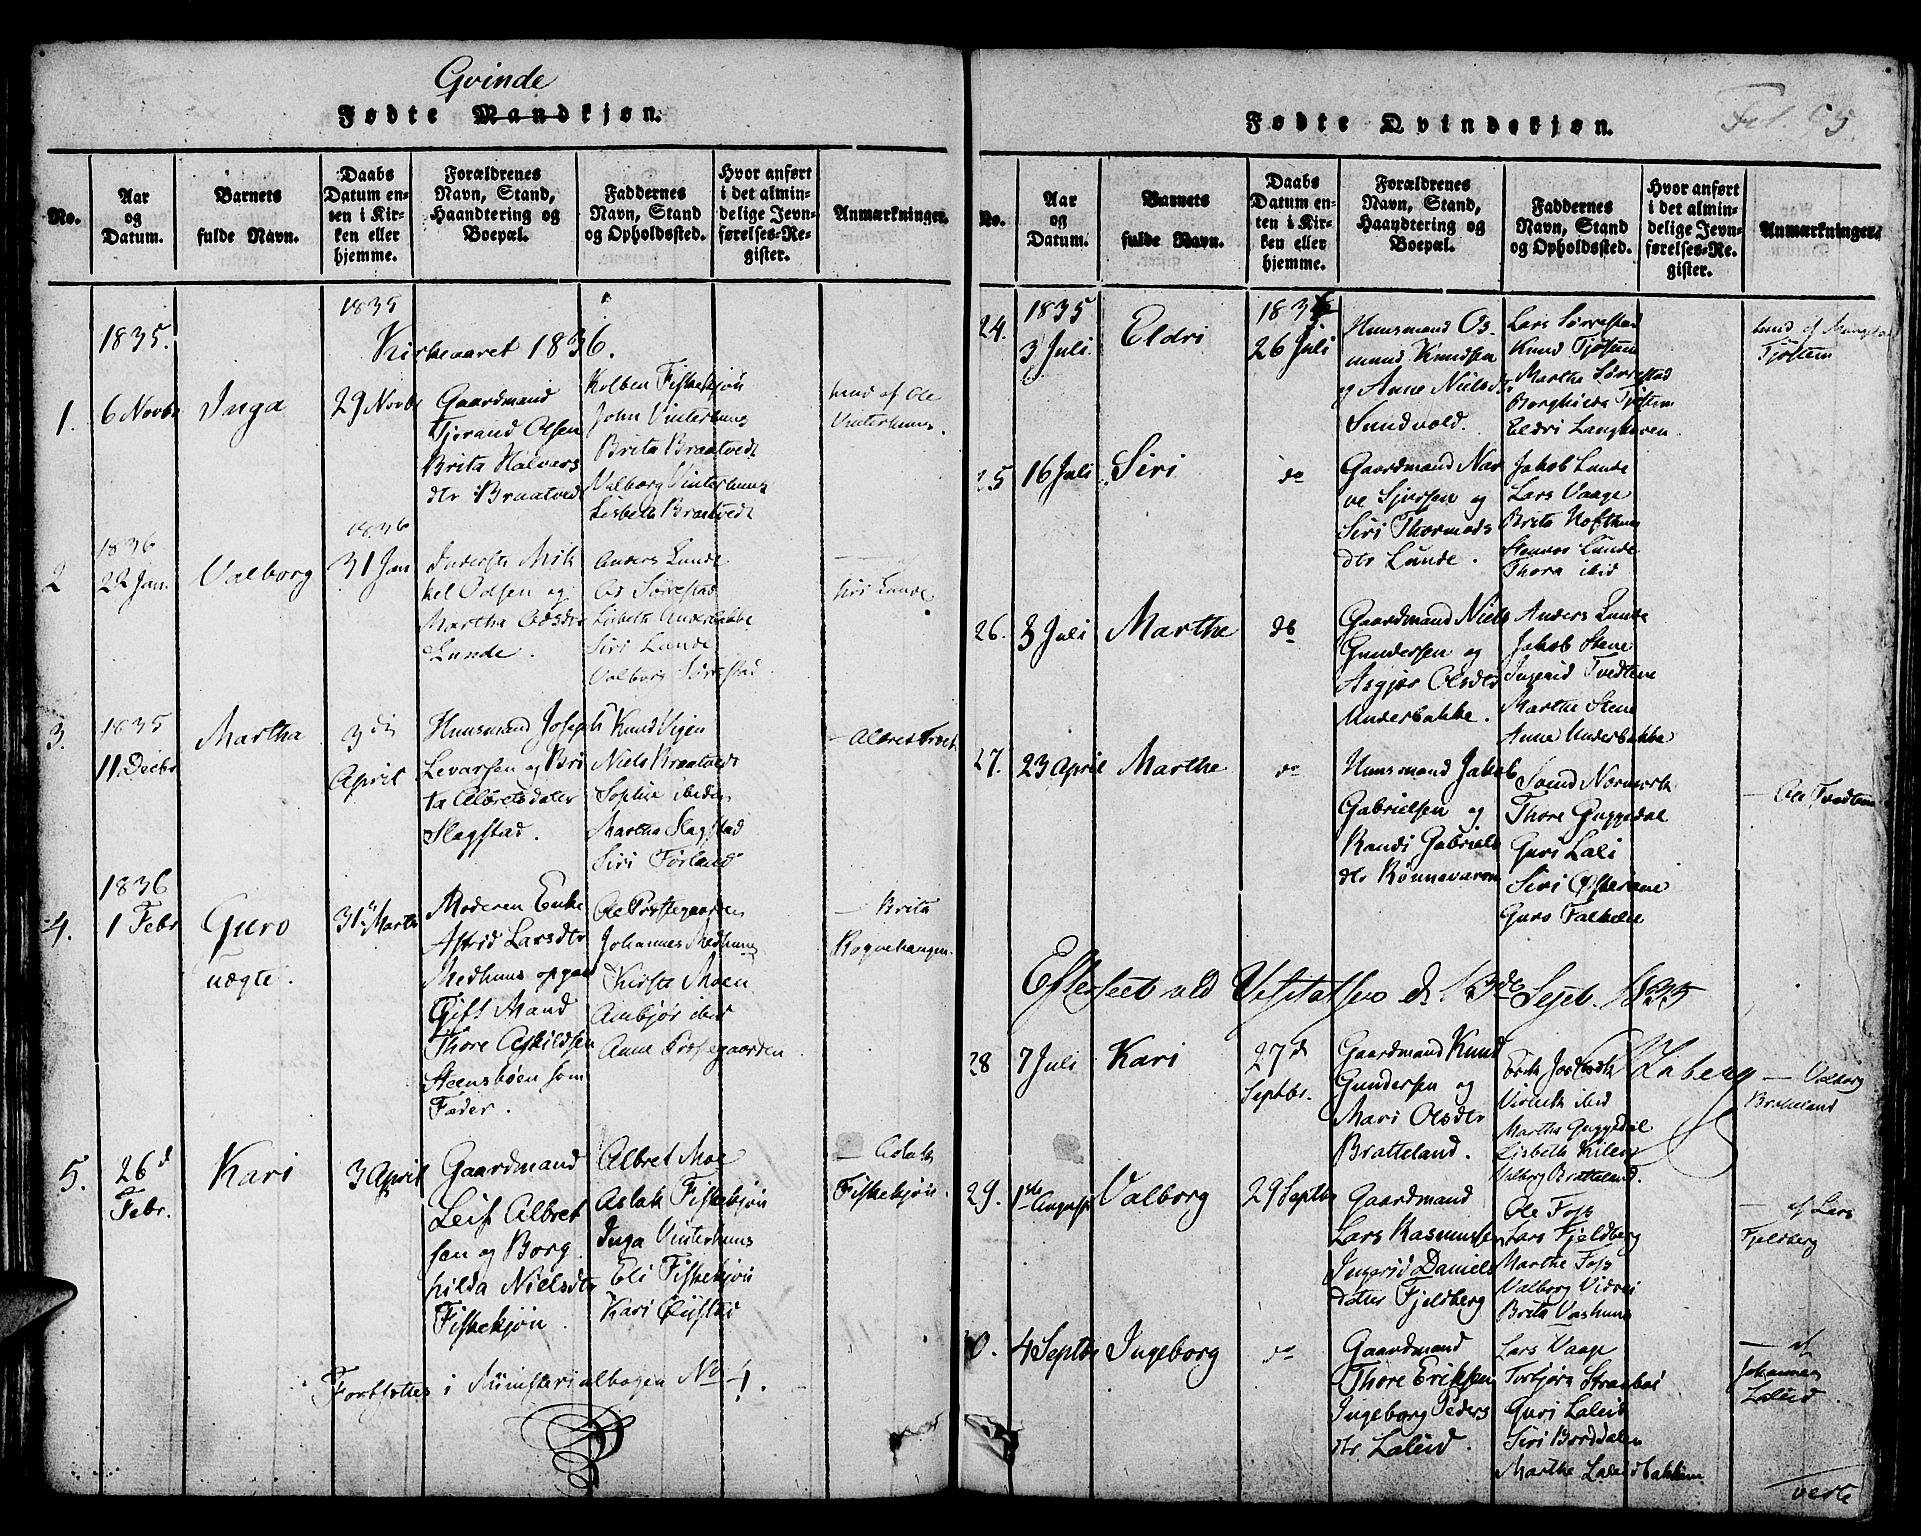 Qvinde
Fødte Mandkjøn.
No.
Aar
og
Datum.
Barnets
fulde Navn.
Daabs
Datum en-
sen i Kir-
ken eller
hjemme.
Forældrenes
Navn, Stand,
Haandtering og
Boepæl.
Faddernes
Navn, Stand
og Opholdssted.
Hvor anført
i det almin-
delige Jevn-
førelses-Re-
gister.
Anmærkninger.
1835.
1835
Kirkeaaret 1836.
1.
6 Novbr
Inga
29 Novbr
Gaardmand
Tjerand Olsen
Brita Halvars
dtr Braatvedt
Kolben Fiskekjøn
John Vinterhuus
Brita Braatvedt
Valborg Vinterhuus
Lisbeth Braatvedt
hend af Ole
Vinterhuus.
2
1836
22 Jan.
Valborg
1836
31 Jan
Inderste Mik
kel Odsen og
Martha Odsdtr
Lunde.
Anders Lunde
Os Sørrestad
Lisbeth Underbakke
Siri Lunde
Valborg Sørrestad
Siri Lunde
3.
1835
11 Decbr
Martha
3di
April
Huusmand Joseph
Levarsen og Bri
ta Albretsdater
Slagstad.
Knud Vigen
Niels Braatvedt
Sophie ibidem
Martha Slagstad
Siri Førland
- Albret
4.
1836
1 Febr
Guro
uægte.
31 Marts
Moderen Enke
Astrid Larsdtr
Medhuus opgav
Gift Mand
Thore Askildsen
Steensbøen som
Fader.
Ole Præstegaarden
Johannes Medhuus
Kirste Moen
Ambjør ibid
Anne Præstegaarden
- Brita
5.
26d
Febr.
Kari
3 April
Gaardmand
Leif Albret
sen og Borg
hilda Nielsdtr
Fiskekjøn.
Albret Moe
Aslak Fiskekjøn
Inga Vinterhuus
Eli Fiskekjøn
Kari
- Aslak
Fiskekjøn.
Fortsættes i Ministerialbogen No 1.
Fol. 55.
Fødte Qvindekjøn.
No.
Aar
og
Datum.
Barnets
fulde Navn.
Daabs
Datum en-
ten i Kir-
ken eller
hjemme.
Forældrenes
Navn, Stand,
Haandtering og
Boepæl.
Faddernes
Navn, Stand
og Opholdssted.
Hvor anført
i det almin-
delige Jevn-
førelses-Re-
gister.
Anmærkninger.
24.
1835
3 Juli
Eldri
1835
26 Juli
Huusmand Os-
mund Knudsen
og Anne Nielsdtr
Sundvold.
Lars Sørrestad
Knud Tjøstem
Marthe Sørrestad
Borghilda Tjøstem
Eldri
hend af
Tjøstem
25
16 Juli
Siri
do
Gaardmand Nar
ve Sjursen og
Siri Thormods
dtr Lunde.
Jakob Lunde
Lars Vaage
Brita Hofthuus
Lunde
Thora ibid
26.
3 Juli
Marthe
do
Gaardmand Niels
Gundersen og
Asgjør Olsdtr
Underbakke.
Anders Lunde
Jakob Stene
Ingerid Tvedtene
Marthe Stene
Anne Underbakke
27.
23 April
Marthe
do
Huusmand Jakob
Gabrielsen og
Randi Gabriels
dtr Rønnevaren
Svend
Thore Guggedal
Guri Lali
Siri
Guro
- Ole Tvedtene
Efterseet ved Visitatsen d. 13de Septb. 1835
28
7 Juli
Kari
27d
Septbr.
Gaardmand Knud
Gundersen og
Mari Olsdtr
Bratteland.
ibid
Martha Guggedal
Lisbeth
Valborg Bratteland.
- Valborg
Brateland
29.
1ste August
Valborg
29 Septbr
Gaardmand
Lars Rasmussen
Ingerid Daniels
datter Fjeldberg
Ole Foss
Lars Fjeldberg
Marthe Foss
Valborg
Brita Vashuus
- af Lars
Fjeldberg
30.
4 Septbr
Ingeborg
do
Gaardmand
Thore Eriksen
Ingeborg Peders
dtr Laleid.
Lars Vaage
Torbjørn Straabøe
Guri Laleid
Siri Borddalen
Marthe Laleidbakken
- af
Johannes
Laleid.
verte